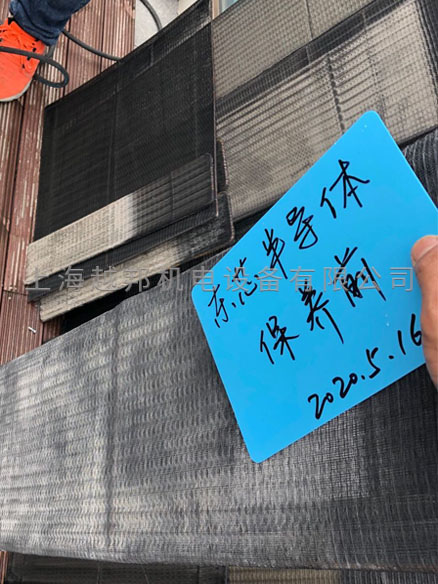 东芯半导体
保养前
2020.5.16
上海越邦机电设备有限公司